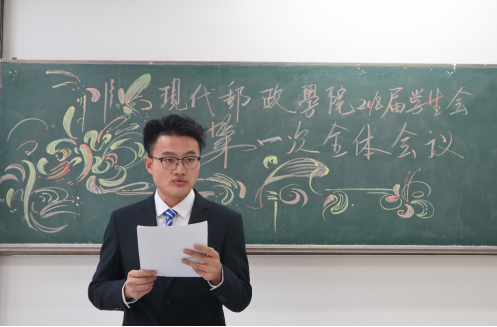 现代邮政學院2018届学生会
第一次全体会议